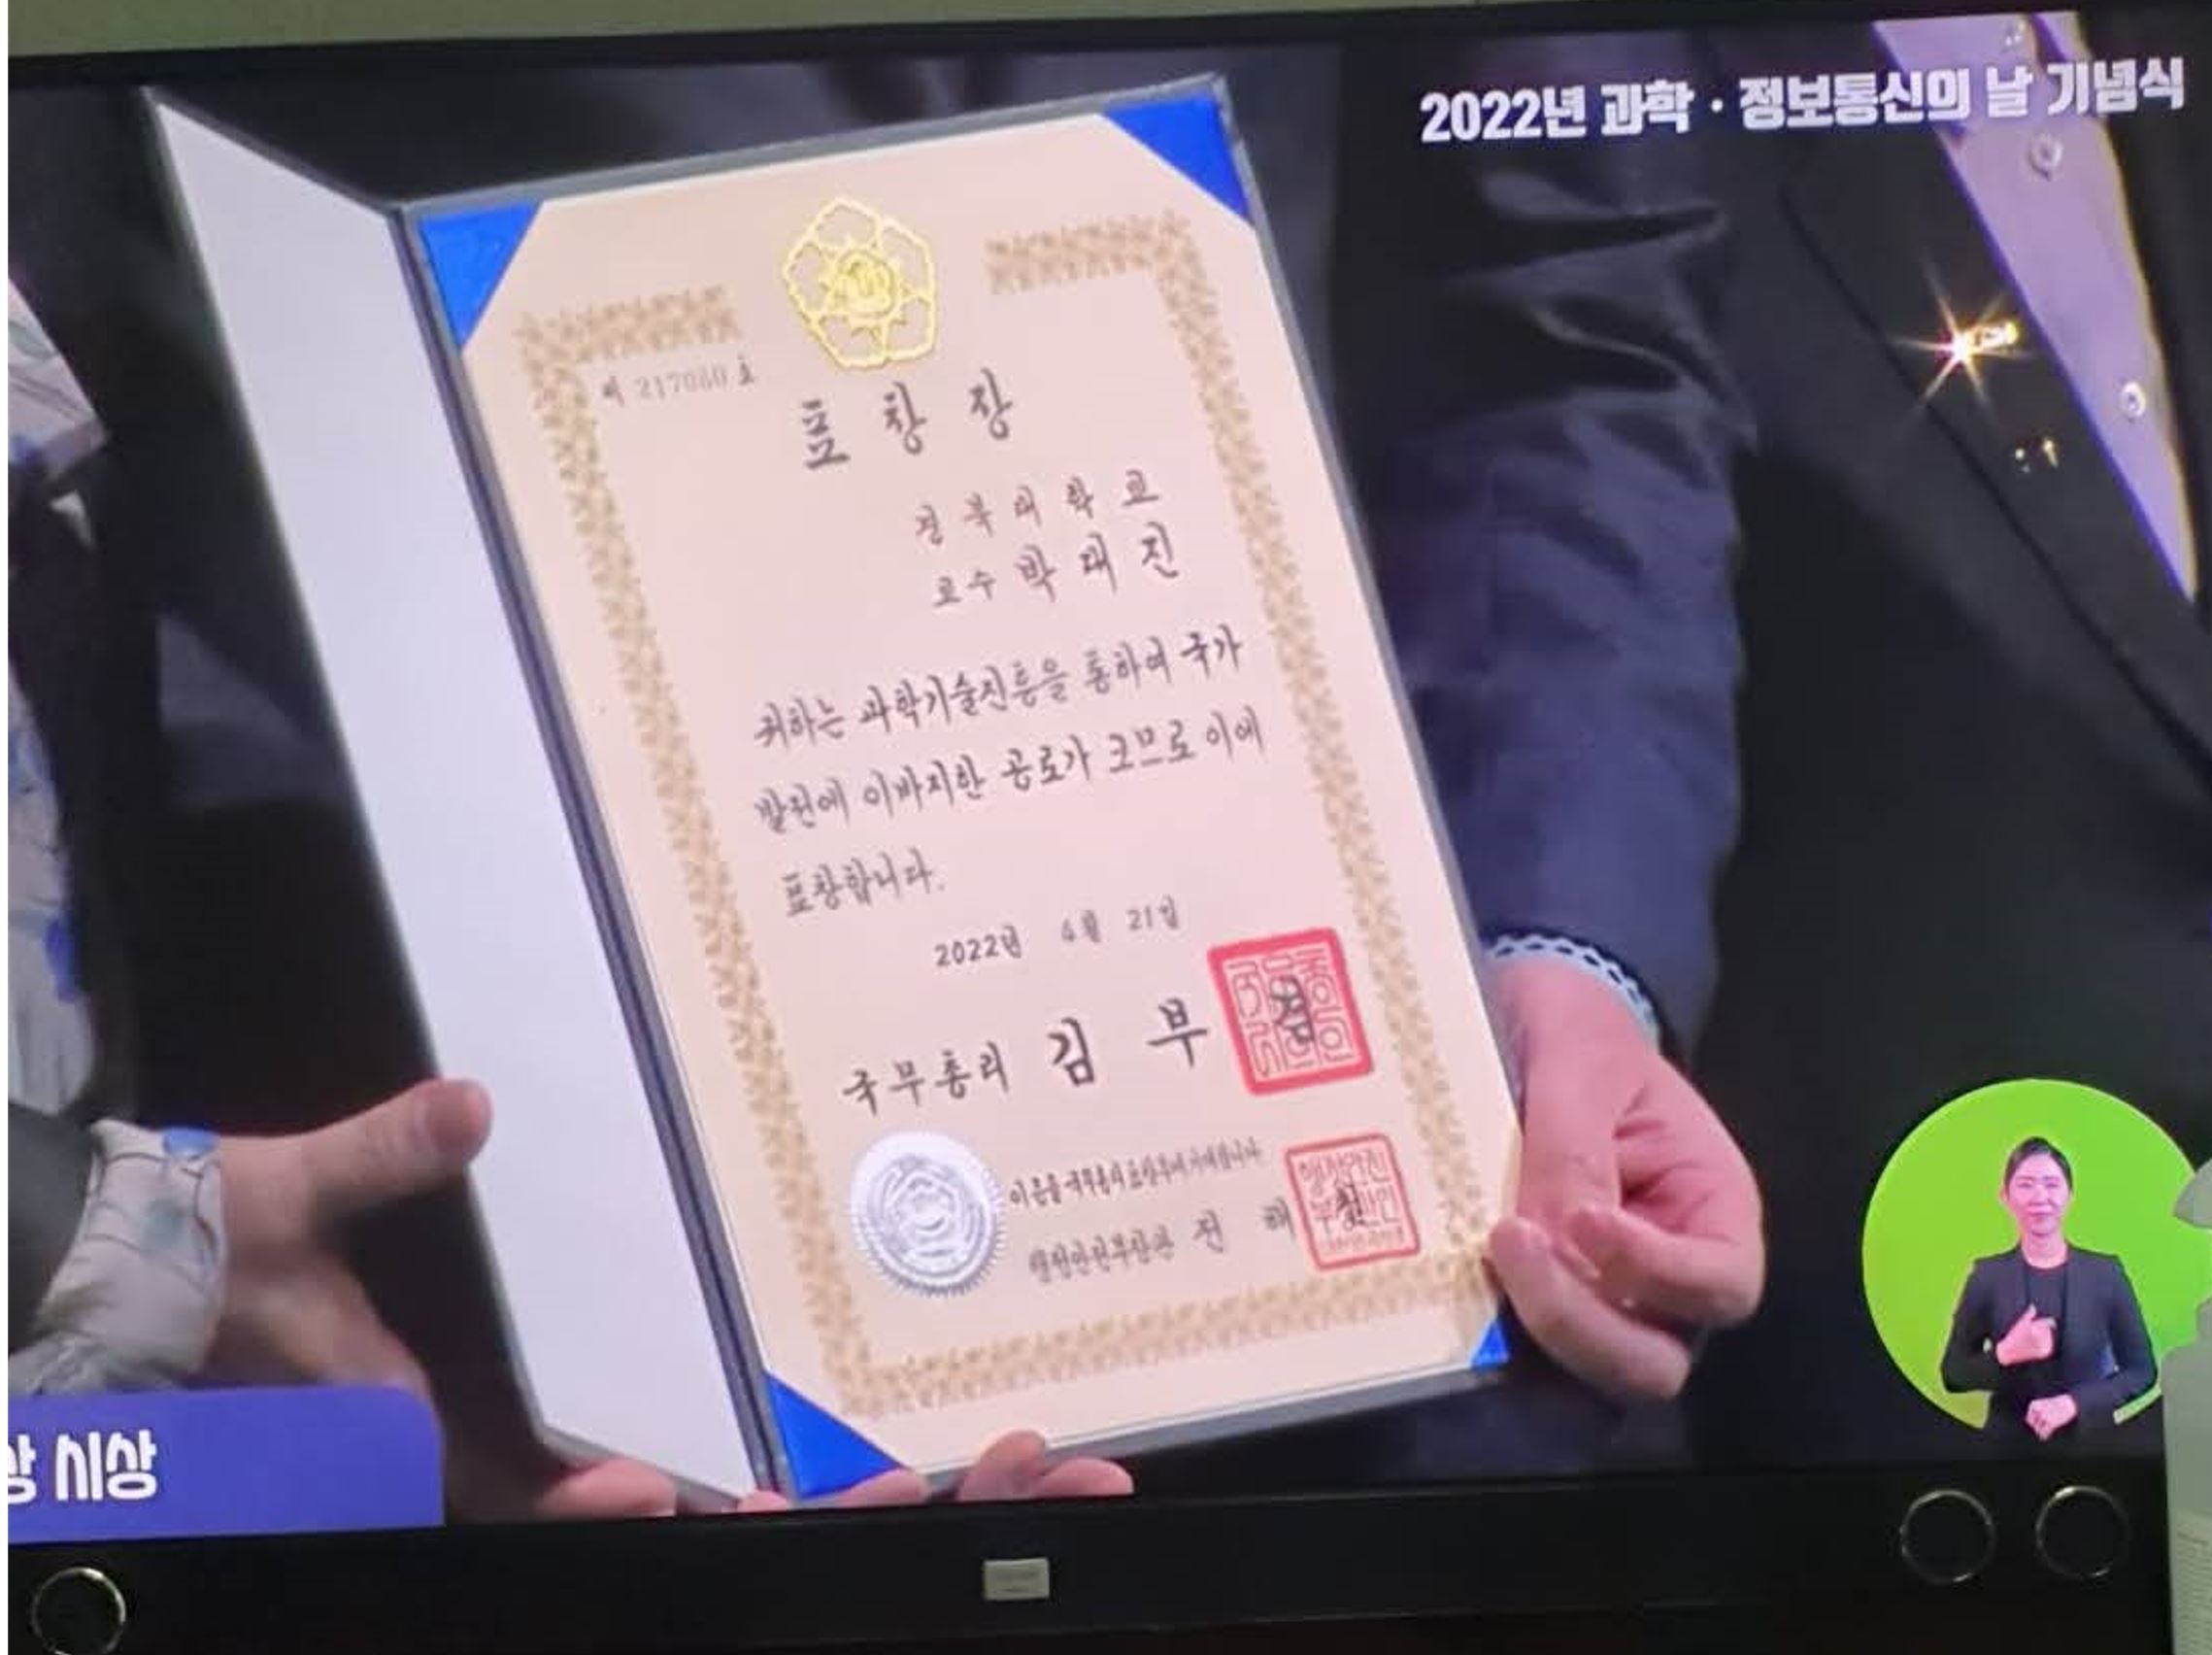 2022년 과학 · 정보통신의 날 기념식
제 217080 호
표 창 장
경 북 대 학 교
교수 박 대 진
귀하는 과학기술진흥을 통하여 국가
발전에 이바지한 공로가 크므로 이에
표창합니다.
2022년 4월 21일
국무총리 김 부 겸
이 증을 국무총리표창부에 기재합니다
행정안전부장관 전 해 철
시상